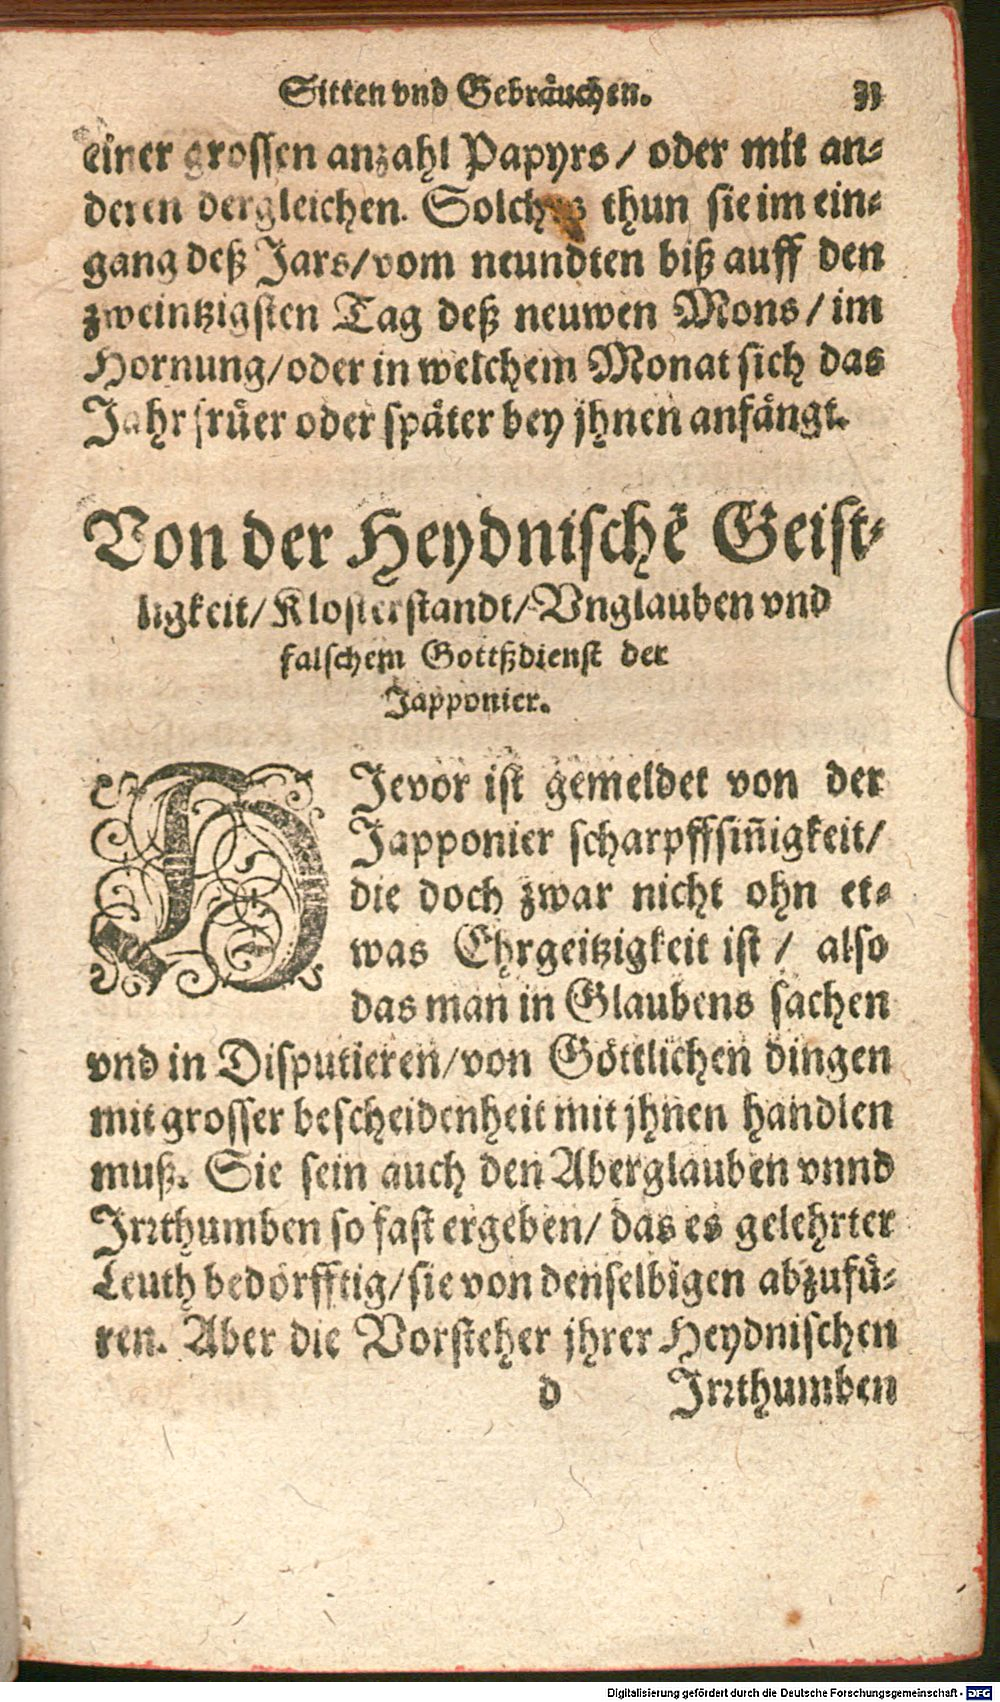 Sitten vnd Gebräuchen. 33
einer grossen anzahl Papyrs / oder mit an-
deren dergleichen. Solches thun sie im ein-
gang deß Jars/vom neundten biß auff den
zweintzigsten Tag deß neuwen Mons / im
Hornung/oder in welchem Monat sich das
Jahr früer oder später bey jhnen anfängt.
Von der Heydnischẽ Geist-
ligkeit/ Klosterstandt/ Vnglauben vnd
falschem Gottßdienst der
Japponier.
HJevor ist gemeldet von der
Japponier scharpffsiñigkeit/
die doch zwar nicht ohn et-
was Ehrgeitzigkeit ist / also
das man in Glaubens sachen
vnd in Disputieren/von Göttlichen dingen
mit grosser bescheidenheit mit jhnen handlen
muß. Sie sein auch den Aberglauben vnnd
Jrrthumben so fast ergeben/ das es gelehrter
Leuth bedörfftig/sie von denselbigen abzufü-
ren. Aber die Vorsteher jhrer Heydnischen
d Jrrthumben
Digitalisierung gefördert durch die Deutsche Forschungsgemeinschaft - DFG